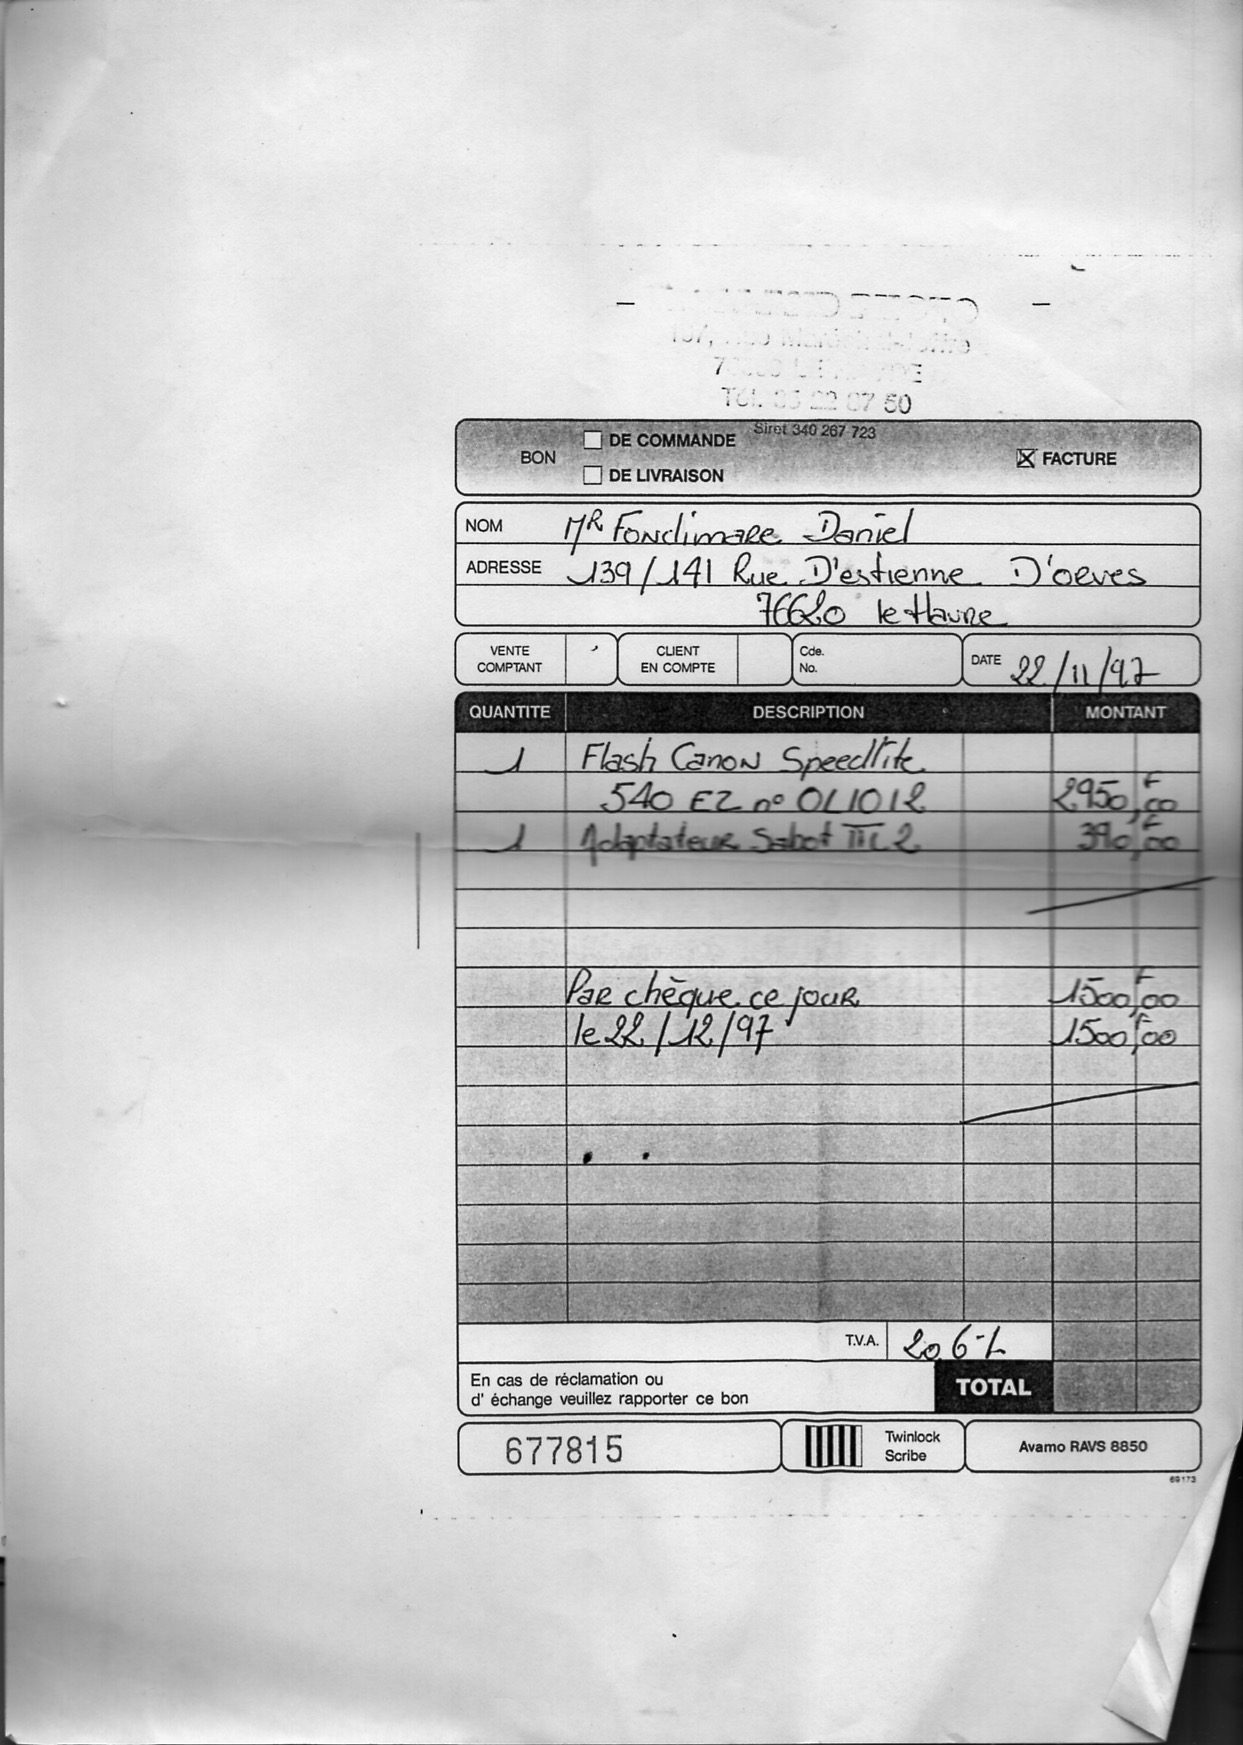 Tél. 35 22 07 50
Siret 340 267 723
BON
DE COMMANDE
DE LIVRAISON
FACTURE
NOM MR Fondimare Daniel
ADRESSE 139/141 Rue D'estienne D'orves
76620 le Havre
VENTE COMPTANT
CLIENT EN COMPTE
Cde. No.
DATE 22/11/97
QUANTITE DESCRIPTION MONTANT
1 Flash Canon Speedlite
540 EZ n° OL1012 2950,F00
1 Adaptateur Sabot 2 390,F00
Par chèque ce jour 1500,F00
le 22/12/97 1500,F00
T.V.A. 20,6%
En cas de réclamation ou
d' échange veuillez rapporter ce bon
TOTAL
677815
Twinlock
Scribe
Avamo RAVS 8850
69173